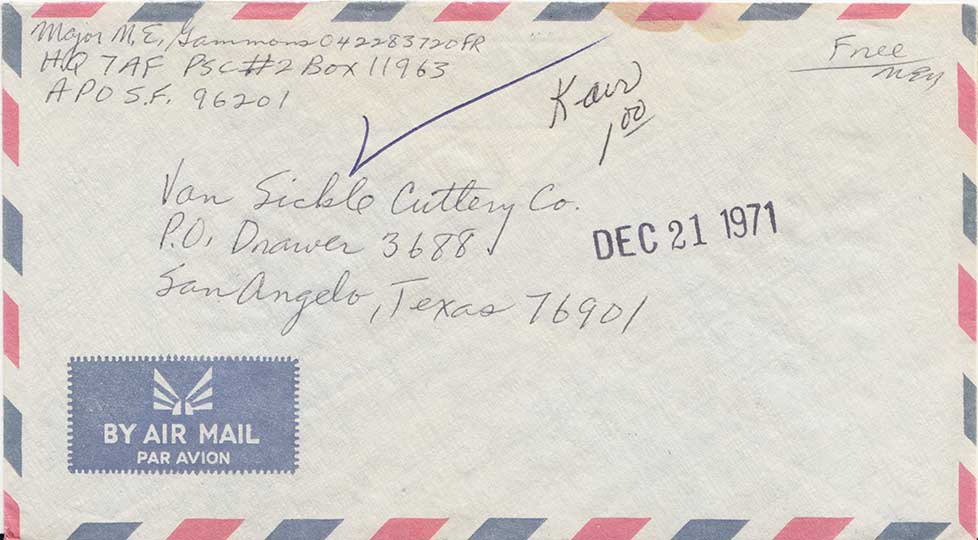 Major M.E. Gammons 042283720FR
HQ 7AF PSC#2 Box 11963
APO S.F. 96201
Free
MEG
K-air
1.00
Van Sickle Cuttlery Co.
P.O. Drawer 3688
San Angelo, Texas 76901
DEC 21 1971
BY AIR MAIL
PAR AVION